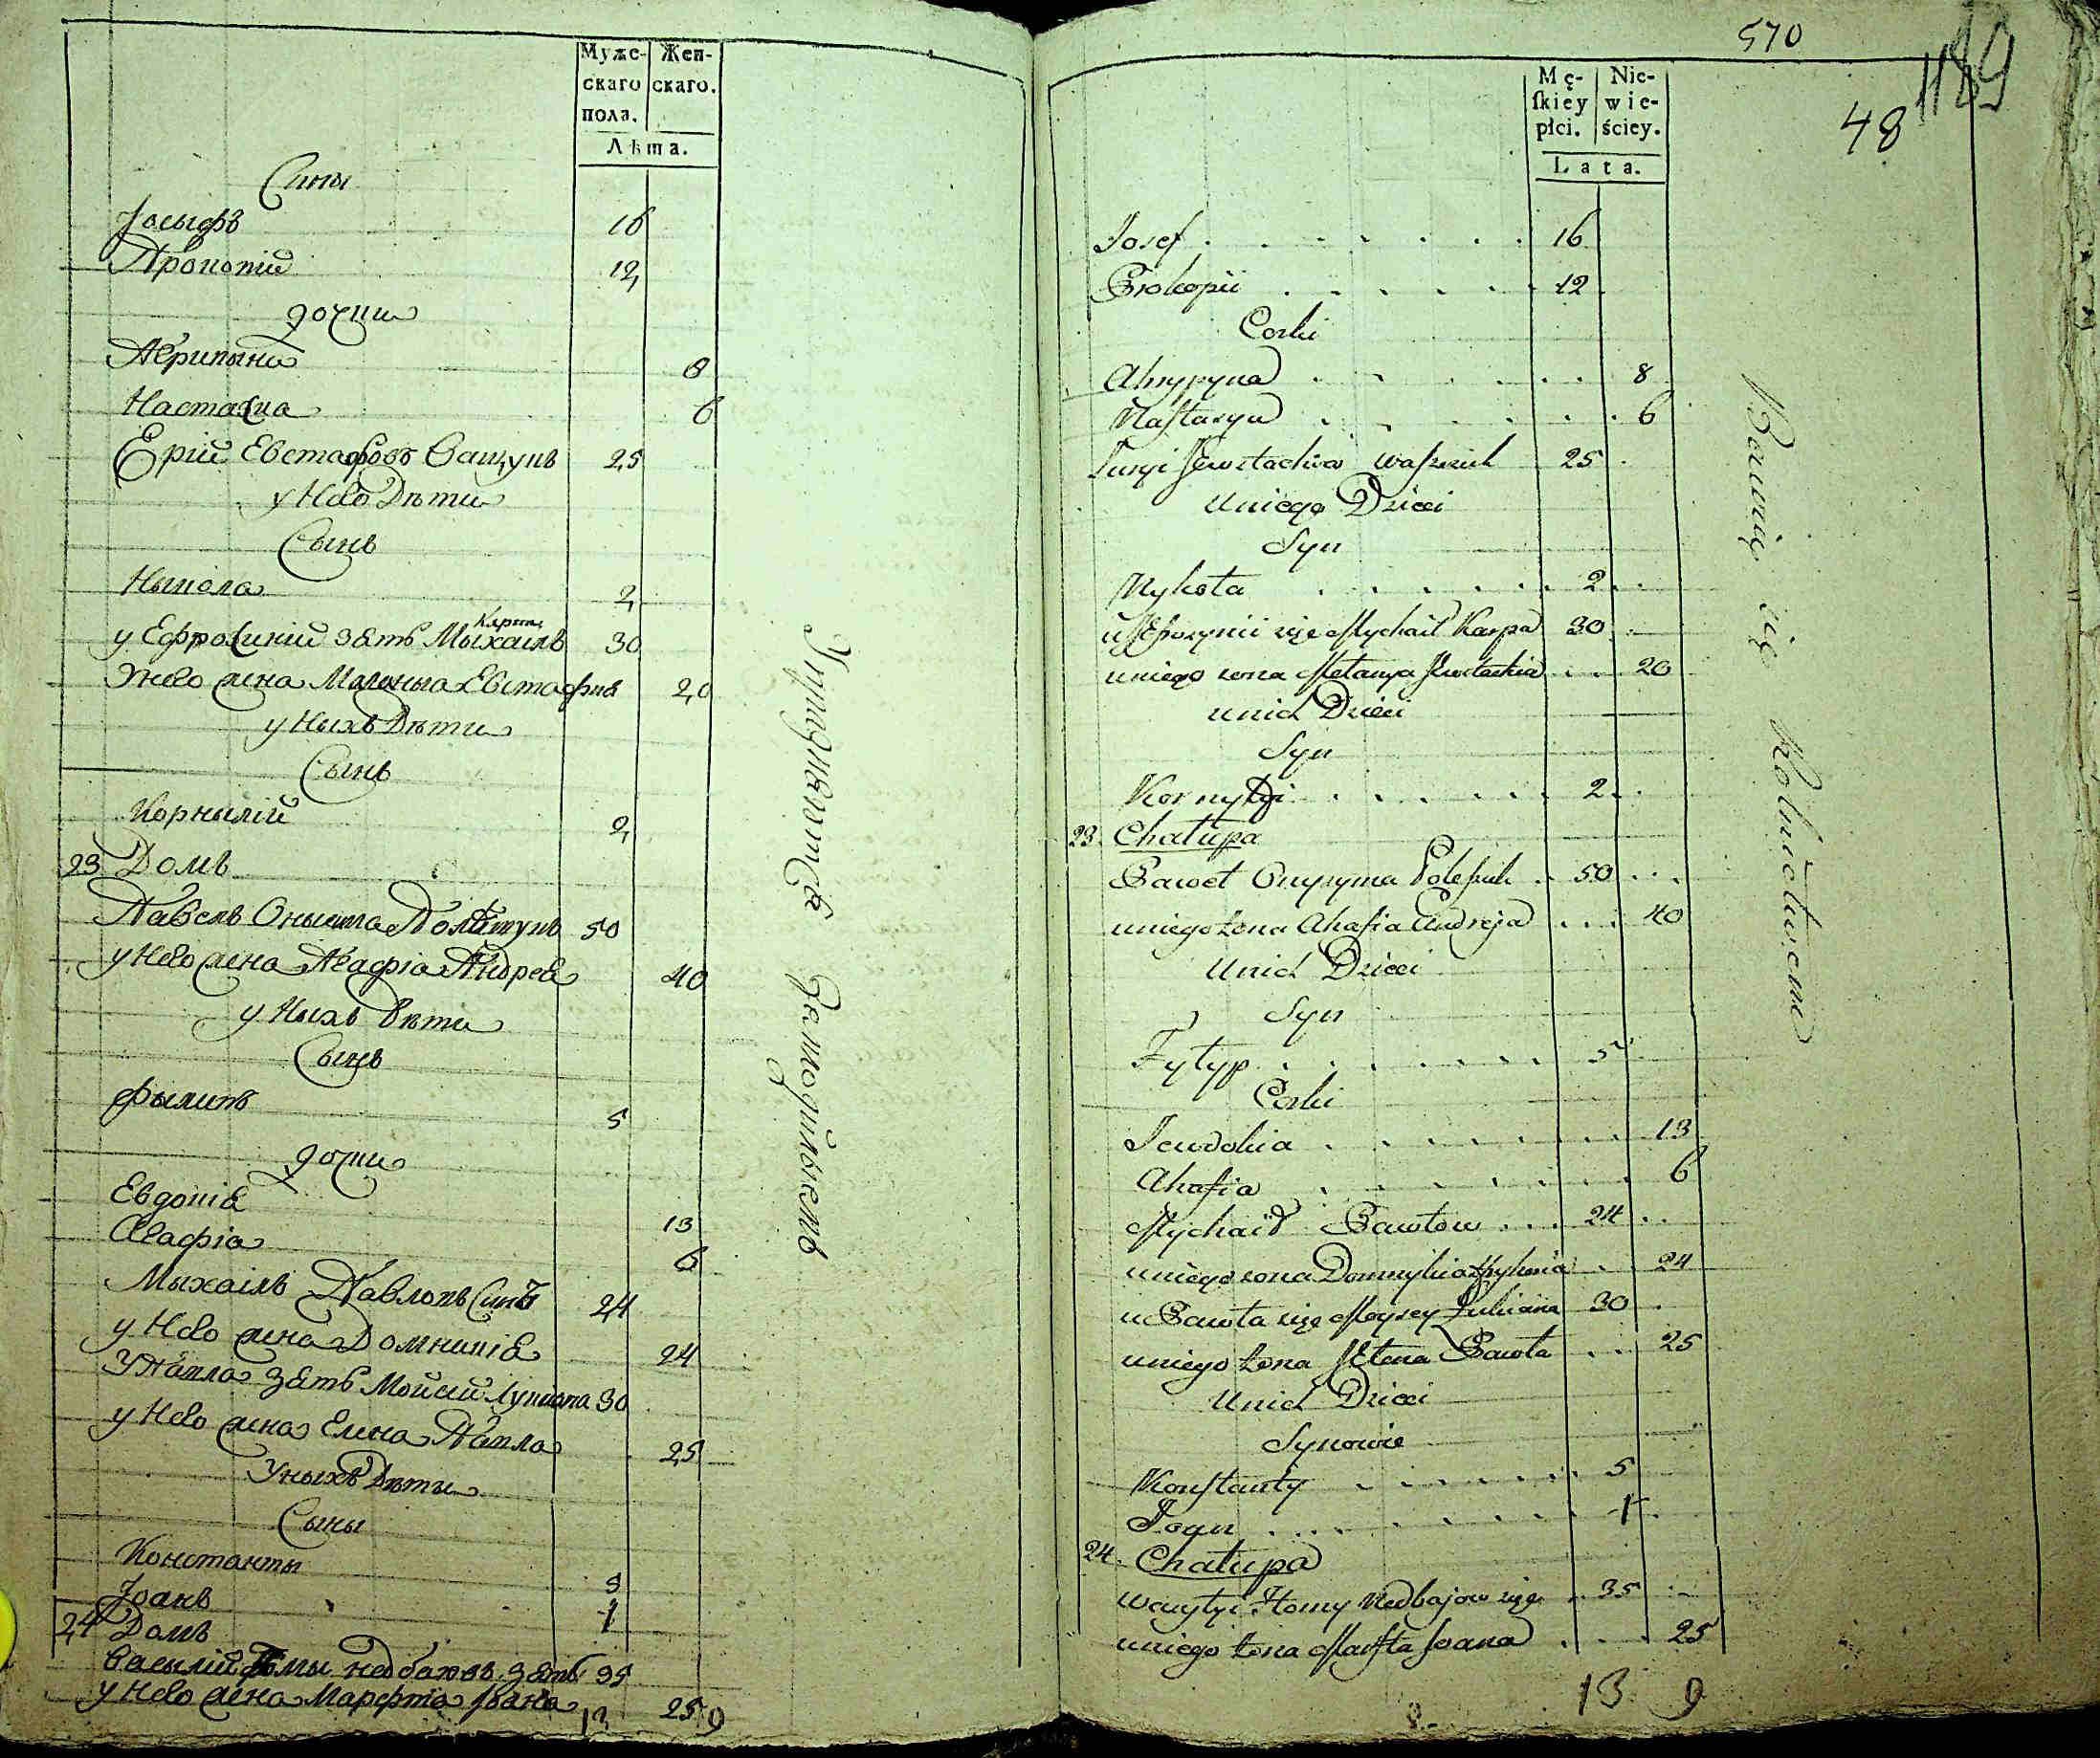 Муже-
скаго
пола.
Жен-
скаго.
Лѣта.
Сины
Іосыфъ 16
Прокопій 12
дочки
Агрипына 8
Настасиа 6
Ерій Евстафовъ Ващукъ 25
у Него Дѣти
Сынъ
Ныкола 2
у Ефросиній зять Мыхаилъ Карпа 30
У него жена Маланыа Евстафия 20
у Ныхъ Дѣти
Сынъ
Корнылій 2
23 Домъ
Павелъ 50
у Него жена Агафіа Андрея 40
у Ныхъ Дѣти
Сынъ
Фылипъ 5
дочки
Евдокія 13
Агафіа 6
Мыхаілъ Павловъ Синъ 24
у Него жена Домникія 24
У Павла зять Мойсей Лукиана 30
у Него жена Елена Павла 25
У ныхъ Дѣти
Сыны
Константы 5
Іоанъ 1
24 Домъ
Василій Хомы Недбаювъ зять 35
у Него жена Марфта Іоана 25
13 9
570
48
189
Mę-
skiey
płci.
Nie-
wie-
ściey.
Lata.
Josef 16
Prokopii 12
Corki
Ahrypyna 8
Nastasya 6
Juryi Jewstachiow Waszczuk 25
u niego Dzieci
Syn
Mykoła 2
u Jefrozynii zięć Mychaił Karpa 30
u niego zona Mełanya Jewstachia 20
u nich Dzieci
Syn
Kornyłyi 2
23. Chałupa
Paweł 50
u niego żona Ahafia Andreja 40
u nich Dzieci
Syn
Fyłyp 5
Corki
Jewdokia 13
Ahafia 6
Mychaił Pawłow 24
u niego zona Domnykia 24
u Pawła zięć Moysey Lukiana 30
u niego żona Jełena Pawła 25
u nich Dzieci
Synowie
Konstanty 5
Joan 1
24. Chałupa
Wasylyi Homy Nedbajow zięć 35
u niego żona Marfta Joana 25
13 9
Bawnią się Rolnictwem